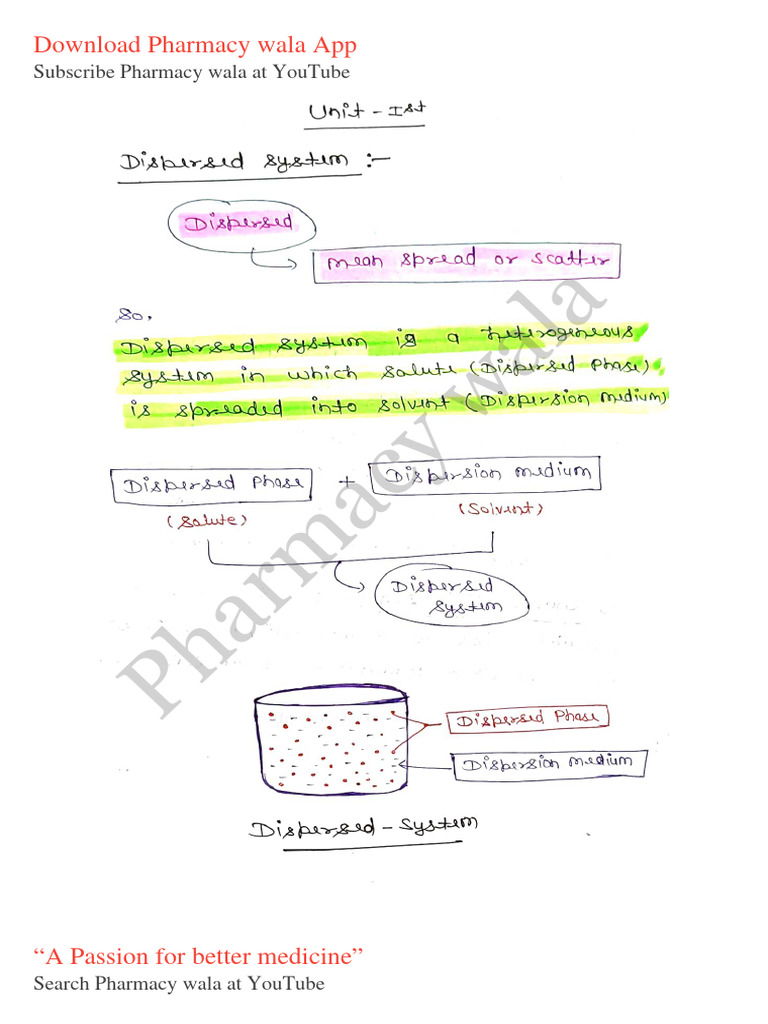 Download Pharmacy wala App
Subscribe Pharmacy wala at YouTube
Unit - Ist
Dispersed system :-
Dispersed
mean spread or scatter
So,
Dispersed system is a heterogeneous
system in which salute (Dispersed Phase)
is spreaded into solvent (Dispersion medium)
Dispersed Phase + Dispersion medium
(Salute) (Solvent)
Dispersed
system
Dispersed Phase
Dispersion medium
Dispersed - System
Pharmacy wala
“A Passion for better medicine”
Search Pharmacy wala at YouTube